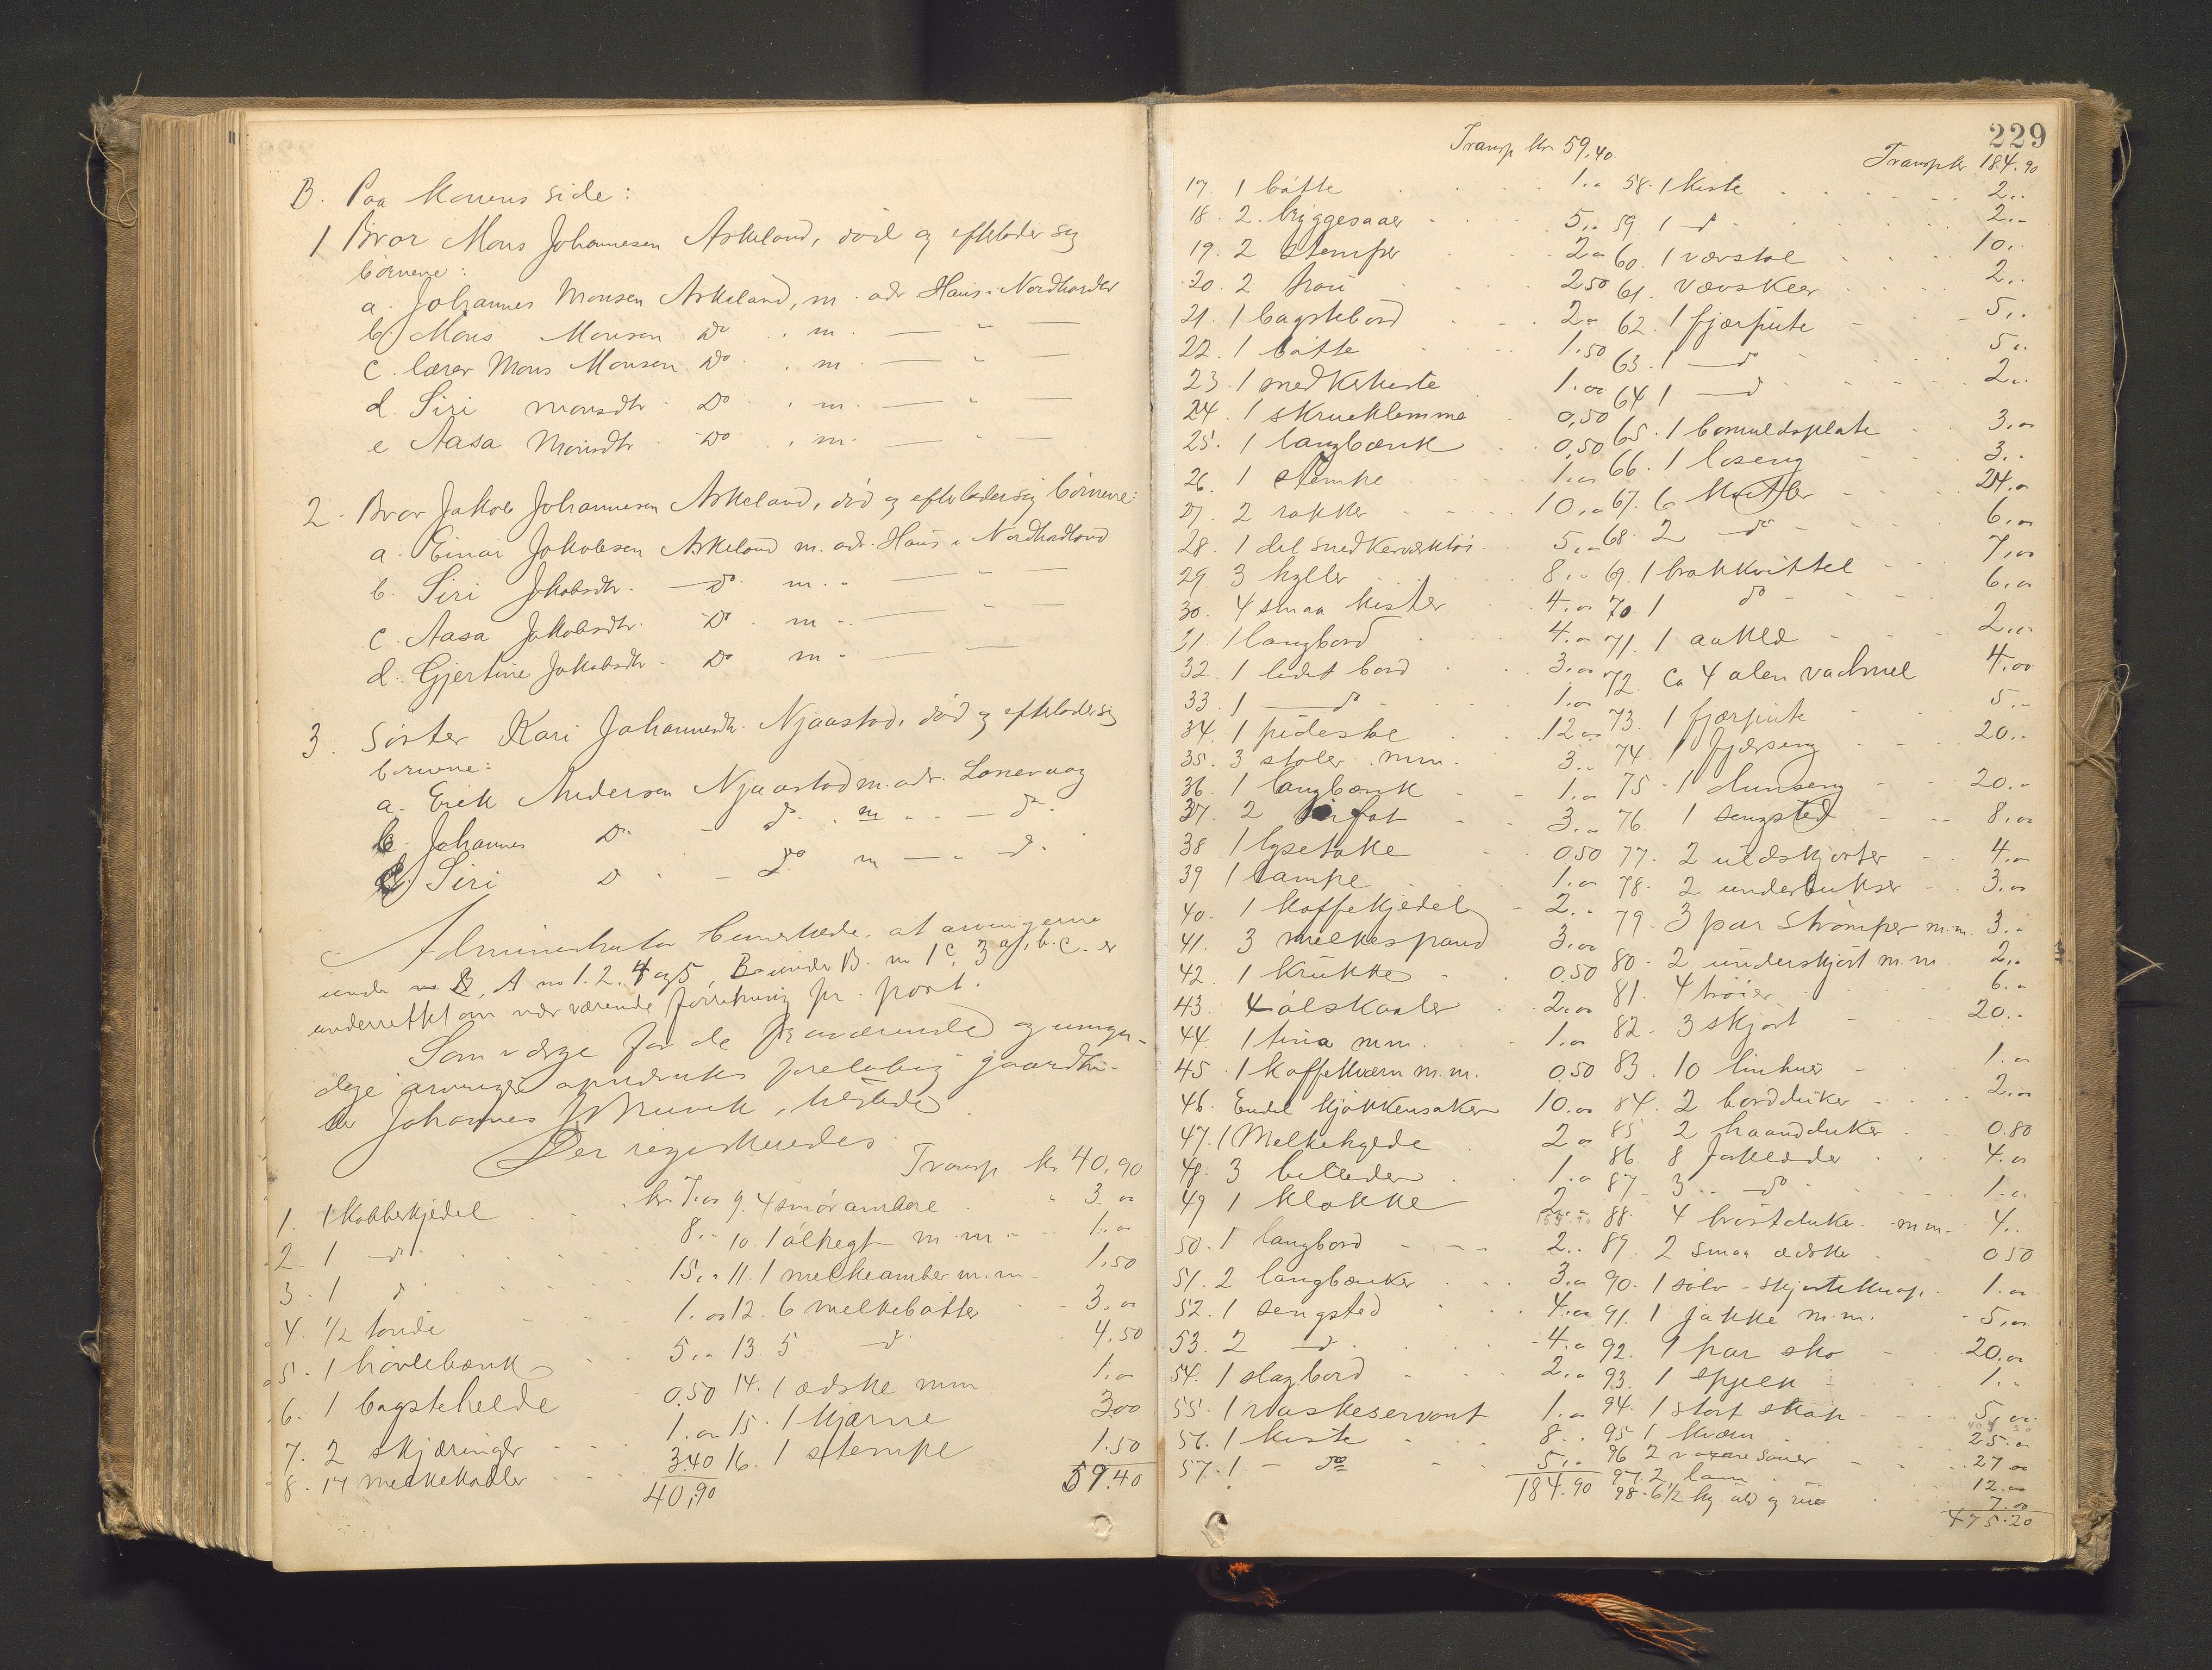 B. Paa konens side:
1 Bror Mons Johannesen Askeland, död og efterlader sig
börnene:
a. Johannes Monsen Askeland, m. adr Haus i Nordhordl
b) Mons Monsen Do , m. — " —
c. lærer Mons Monsen Do , m. — " —
d. Siri Monsdtr Do , m. — " —
e Aasa Monsdtr Do , m. — " —
2. Bror Jakob Johannesen Askeland, död og efterlader sig börnene:
a. Einar Jakobsen Askeland m. adr. Haus i Nordhordland
b. Siri Jakobsdtr. — do m. " — " —
c. Aasa Jakobsdtr. Do m — " —
d. Gjertine Jakobsdtr. Do m " — —
3. Söster Kari Johannesdtr. Njaastad, död og efterlader sig
börnene:
a. Erik Andersen Njaastad m. adr. Lonevaag
b. Johannes Do — do , m " — do.
c) Siri Do — do m — " — do.
Administrator bemerkede, at arvingerne
under A no 1. 2. 4 og 5, B under B. no 1 c, 3 a, b. c. er
underrettet om nærværende forretning pr. post.
Som værge for de fraværende og umyn-
dige arvinger opnævntes foreløbig gaardbru-
ker Johannes J. Bruvik, tilstede.
Der registreredes:
Transp kr 40,90
1. 1 Kobberkjedel kr 7.00 9. 4 smör ambere " 3.00
2. 1 do 8.. 10. 1 ölhegt m.m. 1.00
3. 1 do 15.. 11. 1 melkeamber m.m. 1.50
4. 1/2 tönde 1.00 12. 6 melkebötter 3.00
5. 1 hövlebænk 5.. 13. 5 do 4.50
6. 1 bagstehelde 0.50 14. 1 ædske mm 1.00
7. 2 skjæringer 1.00 15. 1 kjærne 3.00
8. 17 melkekoller 3.40 16. 1 stempe 1.50
40,90 59.40
229
Transp kr 59.40 Transp kr 184.90
17. 1 bötte 1.00 58. 1 kiste 2..
18. 2 bryggesaaer 5.. 59. 1 do 2..
19. 2 stemper 2.00 60. 1 vævstol 10..
20. 2 2.50 61. vævskeer 2..
21. 1 bagstebord 2.00 62. 1 fjærpute 5..
22. 1 bötte 1.50 63. 1 — do 5..
23. 1 snedkerkiste 1.00 64 1 — do 2..
24. 1 skrueklemme 0,50 65. 1 bomuldsplate 3.00
25. 1 langbænk 0,50 66. 1 loseng 3..
26. 1 stempe 1.00 67. 6 kvitler 24.00
27. 2 rokker 10.00 68. 2 do 6.00
28. 1 del snedkerverktöi 5.. 69. 1 brokkvittel 7,00
29. 3 hyller 8.. 70. 1 do 6.00
30. 4 smaa kister 4.00 71. 1 aaklæ 2.00
31. 1 langbord 4.00 72. ca 4 alen vadmel 4.00
32. 1 lidet bord 3.00 73. 1 fjærpute 5..
33. 1 — do 1.00 74. 1 fjærseng 20..
34. 1 pideske 12.00 75. 1 dunseng 20..
35. 3 stoler mm. 3.. 76. 1 sengsted 8,00
36. 1 langbænk 1.00 77. 2 uldskjorter 4.00
37. 2 3.. 78. 2 underbukser 3.00
38 1 lysetake 0.50 79. 3 par strömper m.m. 3..
39 1 lampe 1.00 80. 2 underskjört m.m. 2..
40. 1 kaffekjedel 2.. 81. 4 tröier 6..
41. 3 melkespand 3.00 82. 3 skjört 20..
42. 1 krukke 0.50 83. 10 linhuer 1.00
43. 4 ölskaaler 2.00 84. 2 bordduker 2.00
44. 1 tina mm. 1.00 85 2 haandduker 0.80
45. 1 kaffekværn m.m. 0.50 86. 8 forklæder 4.00
46. Endel kjökkensaker 10.00 87. 3 do 1.00
47. 1 Melkehylde 2.00 88. 4 bröstduker m.m. 4..
48. 3 billeder 1.00 89. 2 smaa ædsker 0.50
49 1 klokke 2.. 90. 1 sölv-skjorteknap. 1.00
50. 1 langbord 2.. 91. 1 jakke m.m. 5,00
51. 2 langbænker 3.00 92. 1 par sko 20,00
52. 1 sengsted 4.00 93. 1 1..
53. 2 do 4.00 94. 1 stort skap 5,00
54. 1 slagbord 2.. 95 1 kværn 25.00
55. 1 vaskeservant 1.00 96 2 voxne sauer 27.00
56. 1 kiste 8.. 97. 2 lam 12.00
57. 1 — do 5.. 98. 6 1/2 kg uld og 7.00
184.90 475.20